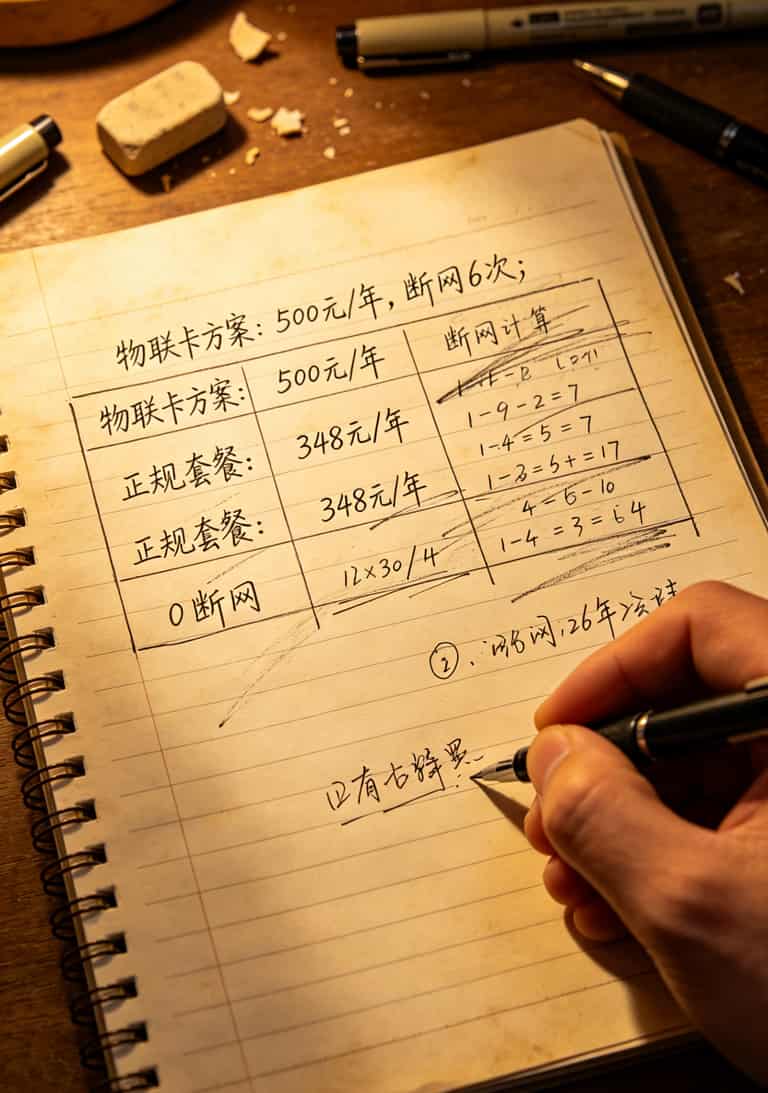 物联卡方案：500元/年，断网6次；
物联卡方案： 500元/年 断网计算
1-9-2=7
正规套餐： 348元/年 1-4=5=7
1-3=5+=17
正规套餐： 348元/年 4=6-10
1-4=3=64
0断网 12×30/4
②